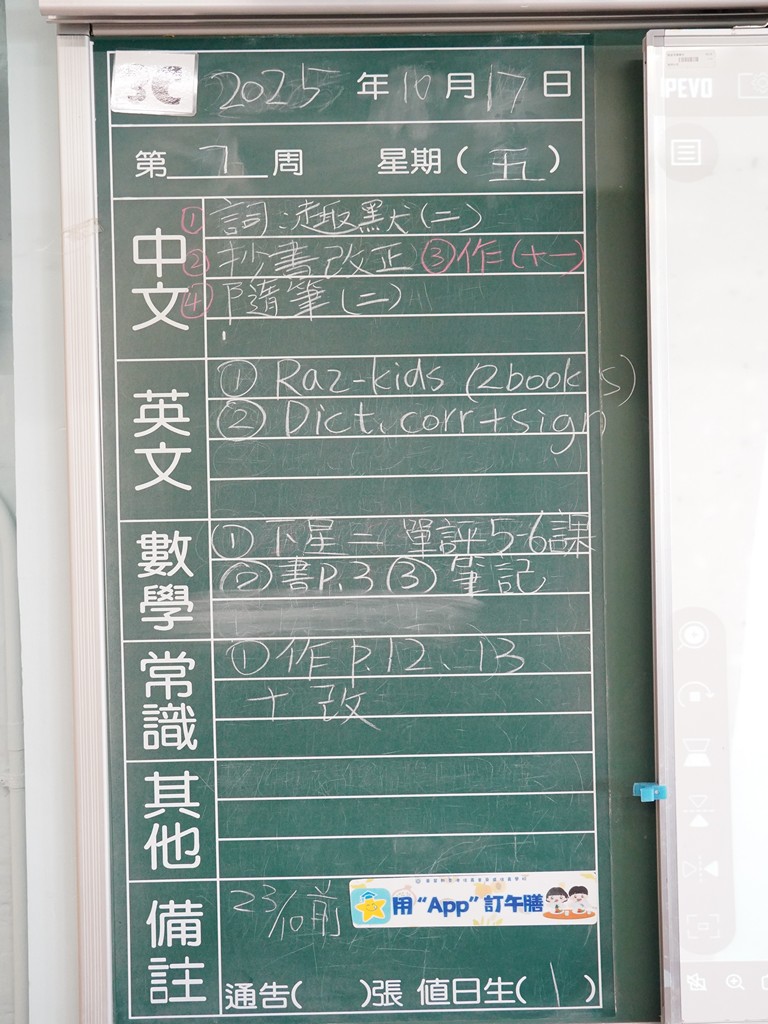 2025年10月17日
第7周 星期(五)
中文
① 詞:趣默(二)
② 抄書改正 ③作(十一)
④ 隨筆(二)
英文
① Raz-kids (2books)
② Dict. corr + sign
數學
① 下星二 單評5-6課
② 書P.3 ③ 筆記
常識
① 作P.12、13
+改
其他
備註
23/10前
用“App”訂午膳
通告( )張 值日生(1)
IPEVO